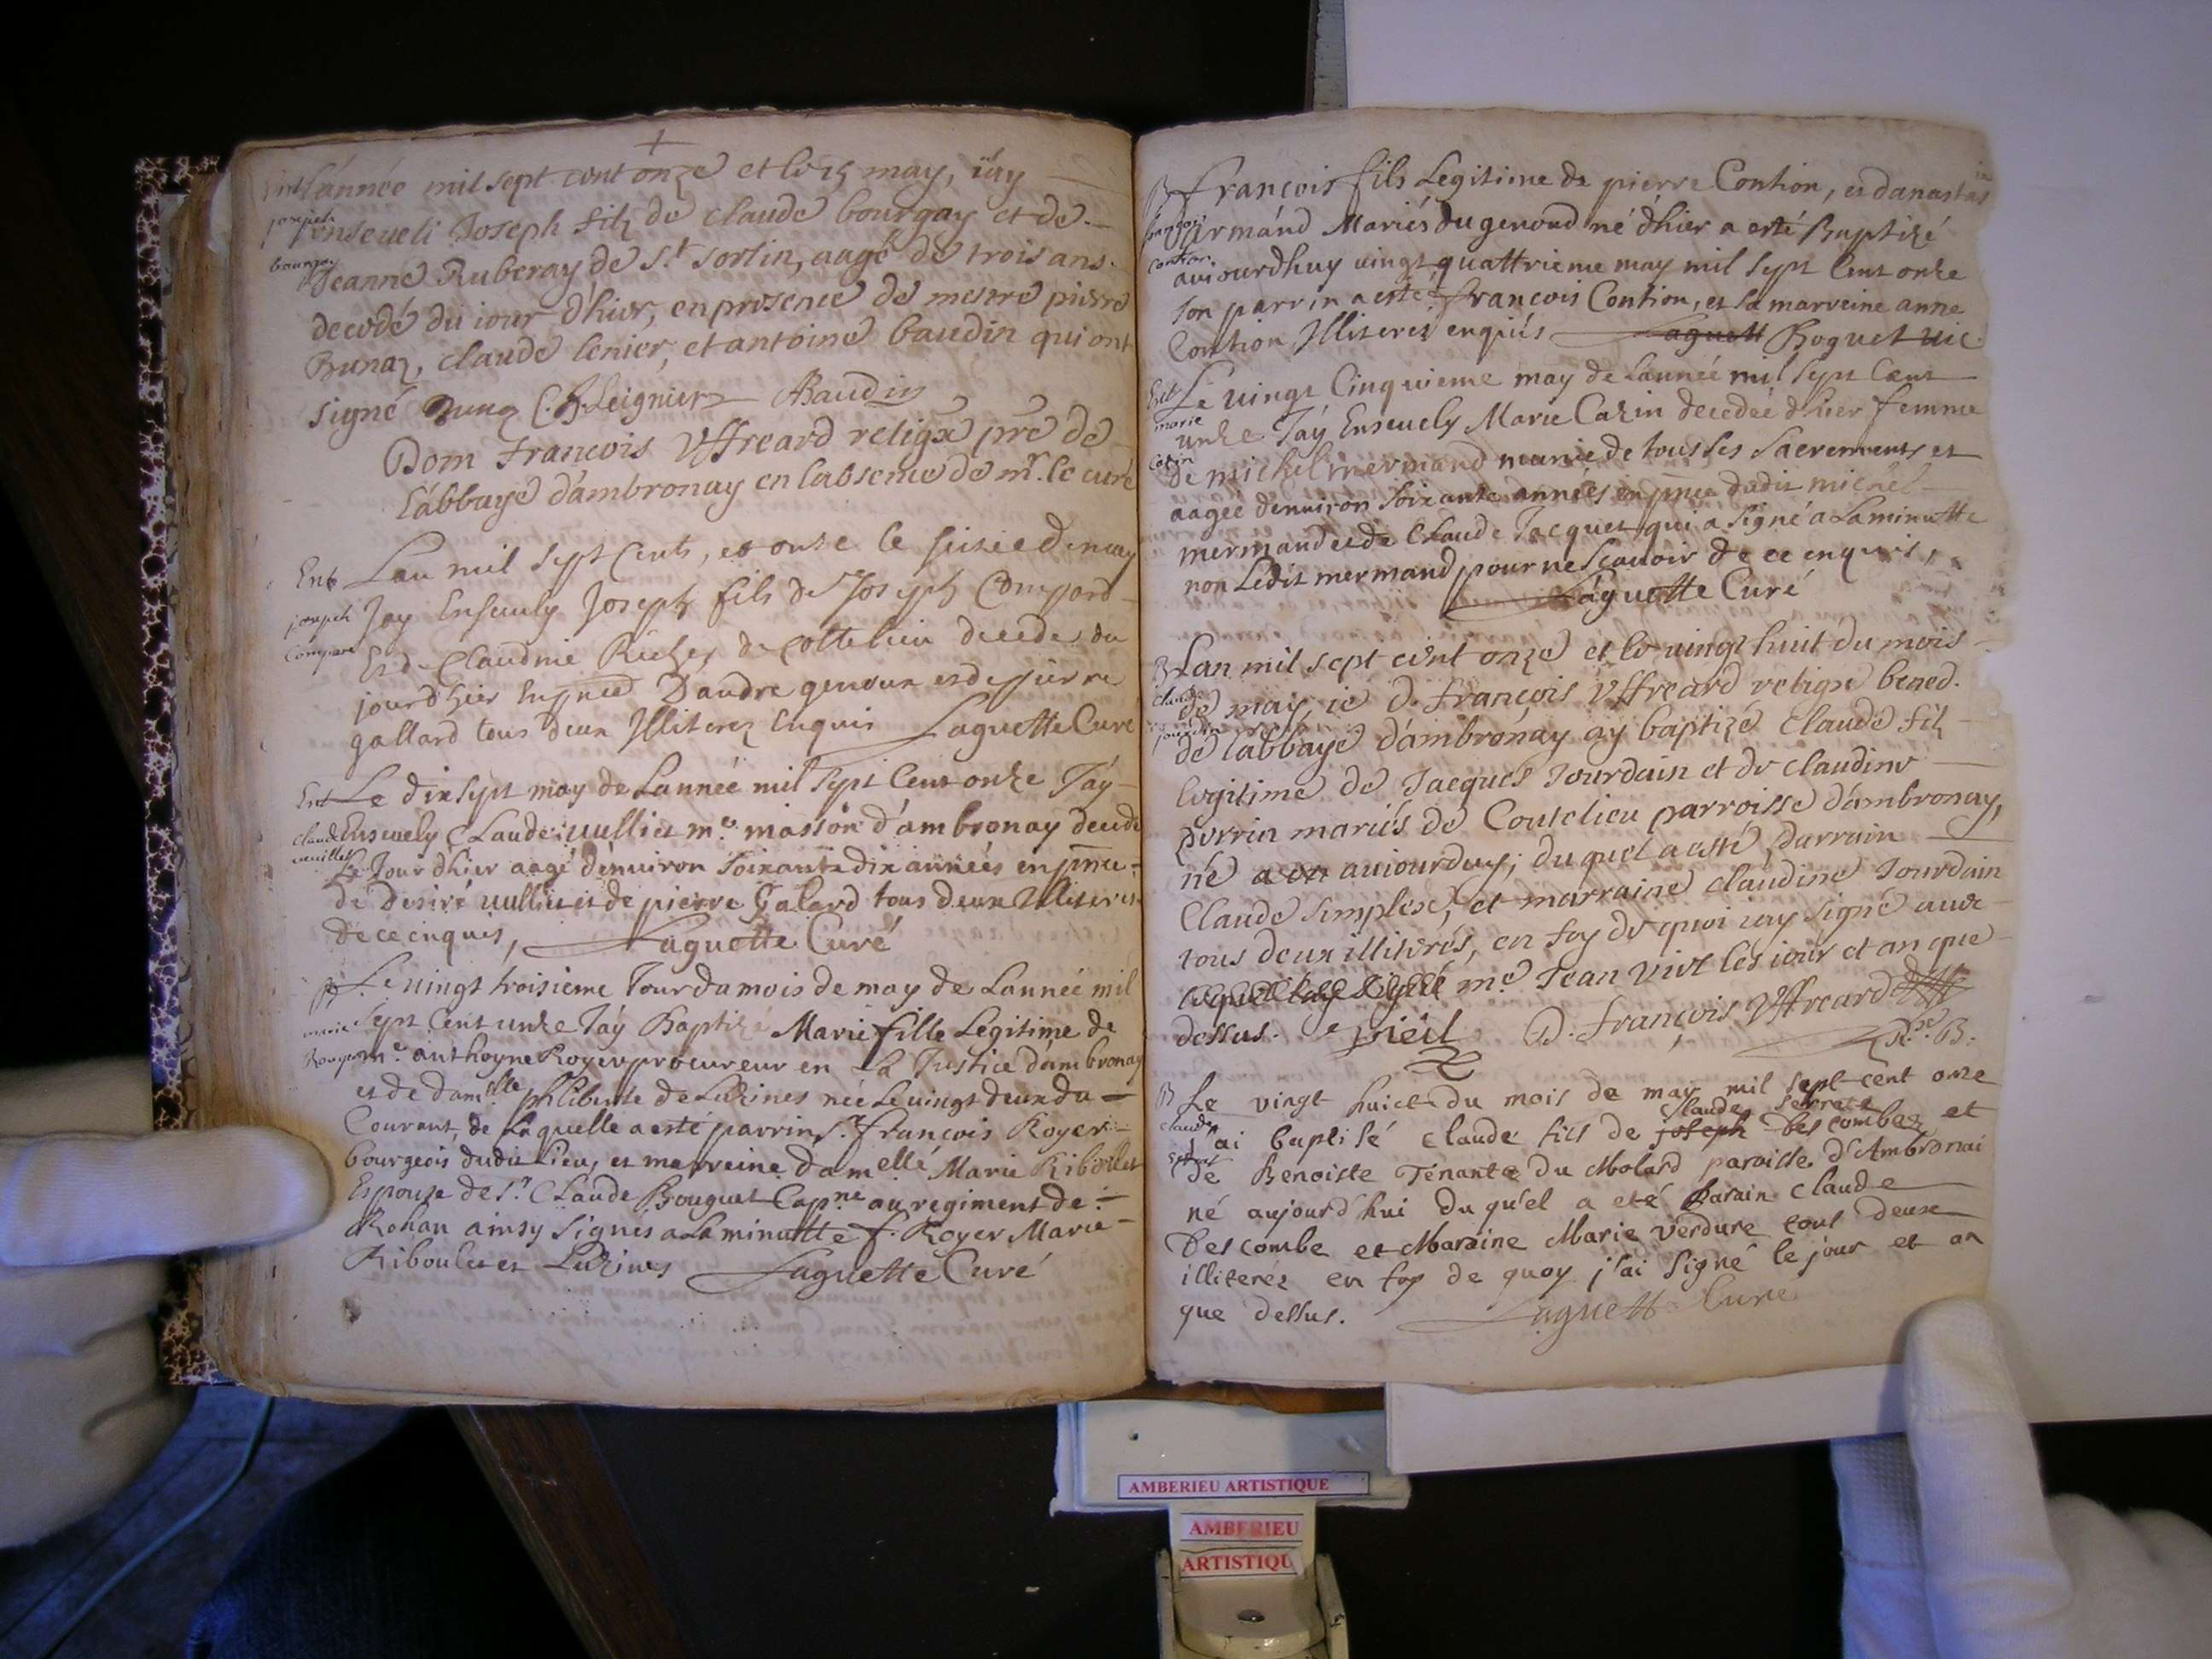 Ent
joseph
bourgay
Lánnée mil sept cent onze et le 15 may, iáy
enseueli Joseph filz de claude bourgay et de
Jeanne Ruberay de S.t sorlin, aagé de trois ans
decedé du iour d'hier, en presence de mestre pierre
Bunaz, claude lenier, et antoine baudin qui ont
signé Bunaz C. B. Leignier Baudin
Dom François Uffreard religx pre de
l'ábbaye d'ambronay en labsence de mr. le curé
Ent
joseph
Compare
Lan mil sept Cents, et onze le seize de may
Jay Enseuely Joseph fils de Joseph Compard
Et de Claudine Richez de cottelieu decede du
jour d'hier En pnce D'andre genoux et de pierre
gallard tous deux Illiterez Enquis Laguette Curé
Ent
claude
uuillet
Le dix sept may de Lannée mil sept Cent onze Jáy
Enseuely Claude uulliet me. masson d'ambronay decedé
Le Jour dhier aagé denuiron soixante dix années en pnce
de desiré uulliet et de pierre Galard tous deux Illiteres
de ce enquis, Laguette Curé
B
marie
Royer
Le uingt troisieme Jour du mois de may de Lannée mil
sept Cent unze Jáy Baptizé Marie fille Legitime de
me. anthoyne Royer procureur en La Justice dambronay
et de damlle philiberte de Luzines née Le uingt deux du
Courant, de Laquelle a esté parrin Sr. françois Royer
bourgeois dudit Lieu, et marreine damelle Marie Riboulet
Espouze de Sr. Claude Bouguet Capne. au regiment de
Rohan ainsy signes a La minutte f. Royer Marie
Riboulet et Luzines Laguette Curé
B
françois
Contion
françois fils Legitime de pierre Contion, et danastasie
Mermánd Mariés du genoud né d'hier a esté Baptizé
auiourdhuy uingt quattrieme may mil sept Cent onze
son parrin a esté françois Contion, et sa marreine anne
Contion Illiterez enquis Laguett Boguet uic.
Ent
marie
Cazin
Le uingt Cinquieme may de Lannée mil sept Cent
unze Jáy Enseuely Marie Cazin decedée d'hier femme
de michel mermand munie de tous ses Sacrements et
aagée denuiron soixante années en pnce dudit michel
mermand et de Claude Jacquet qui a signé a La minutte
non Ledit mermand pour ne scauoir de ce enquis,
Láguette Curé
B
claude
jourdain
Lan mil sept cent onze et le uingt huit du mois
de may ie d. françois Uffreard religx bened.
de l'abbaye d'ámbronáy ay baptizé claude filz
legitime de Jacques Jourdain et de claudine
perrin mariés de Coutelieu parroisse d'ambronay,
né auiourduy; duquel a esté parrain
Claude simplex, et marraine claudine Jourdain
tous deux illiterés, en foy de quoi iay signé auec
me. Jean viol les iour et an que
dessus. D. françois Uffreard
R.x B.
B
claude
Le vingt huict du mois de may mil sept-cent onze
Claude serrete
j'ai baptisé claude fils de joseph des combez et
de Benoiste Tenante du Molard paroisse d'Ambronai
né aujourd'hui du qu'el a eté Parain Claude
Descombe et Maraine Marie Verdure tout deux
illiterez en foy de quoy j'ai signé le jour et an
que dessus. Laguett Curé
AMBERIEU ARTISTIQUE
AMBERIEU
ARTISTIQU